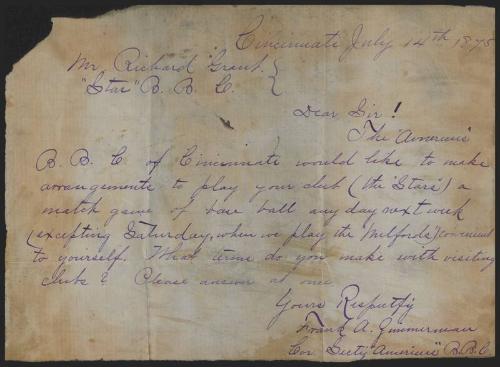 Cincinnati July 14th 1875
Mr Richard Grant. }
"Star" B. B. C. }
Dear Sir!
The "American"
B. B. C of Cincinnati would like to make
arrangements to play your club (the "Stars") a
match game of base ball any day next week
(excepting Saturday, when we play the "Milfords") convenient
to yourself. What terms do you make with visiting
clubs? Please answer at once
Yours Respectfy
Frank A. Zimmerman
Cor Secty "American" B.B.C